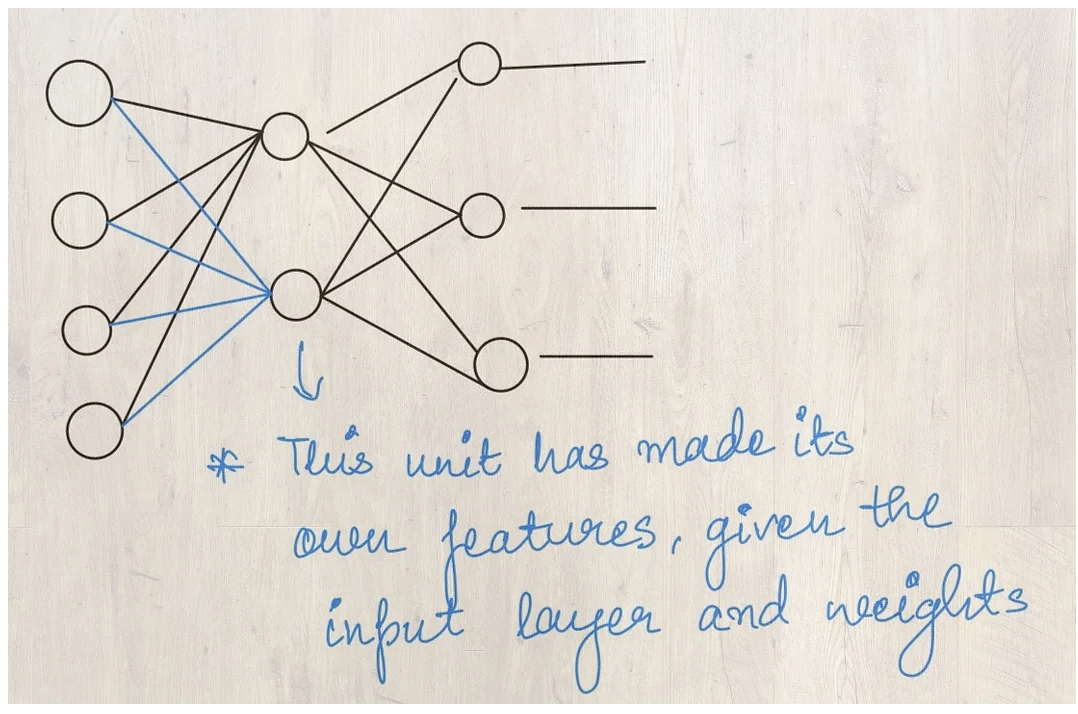 * This unit has made its
own features, given the
input layer and weights